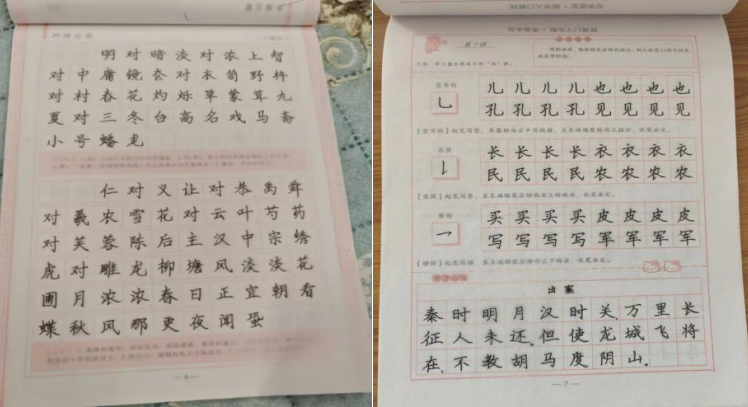 明对暗淡对浓上智
对中庸镜奁对衣笥野杵
对村舂花灼烁草蒙茸九
夏对三冬台高名戏马斋
小号蟠龙
仁对义让对恭禹舜
对羲农雪花对云叶芍药
对芙蓉陈后主汉中宗绣
虎对雕龙柳塘风淡淡花
圃月浓浓春日正宜朝看
蝶秋风那更夜闻蛩
— 4 —
第7课
竖弯钩
儿儿儿儿也也也也
孔孔孔孔见见见见
竖提
长长长长衣衣衣衣
民民民民农农农农
横钩
买买买买皮皮皮皮
写写写写军军军军
出塞
秦时明月汉时关万里长
征人未还。但使龙城飞将
在,不教胡马度阴山。
— 7 —